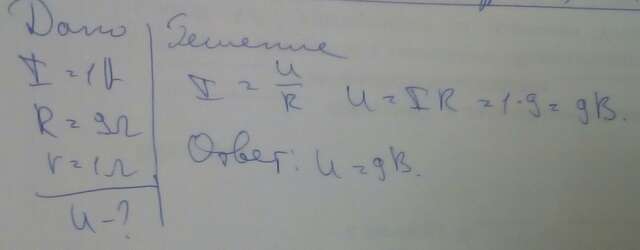 Дано
I = 1А
R = 9Ω
r = 1Ω
U - ?
Решение
I = U/R U = IR = 1·9 = 9В.
Ответ: U = 9В.